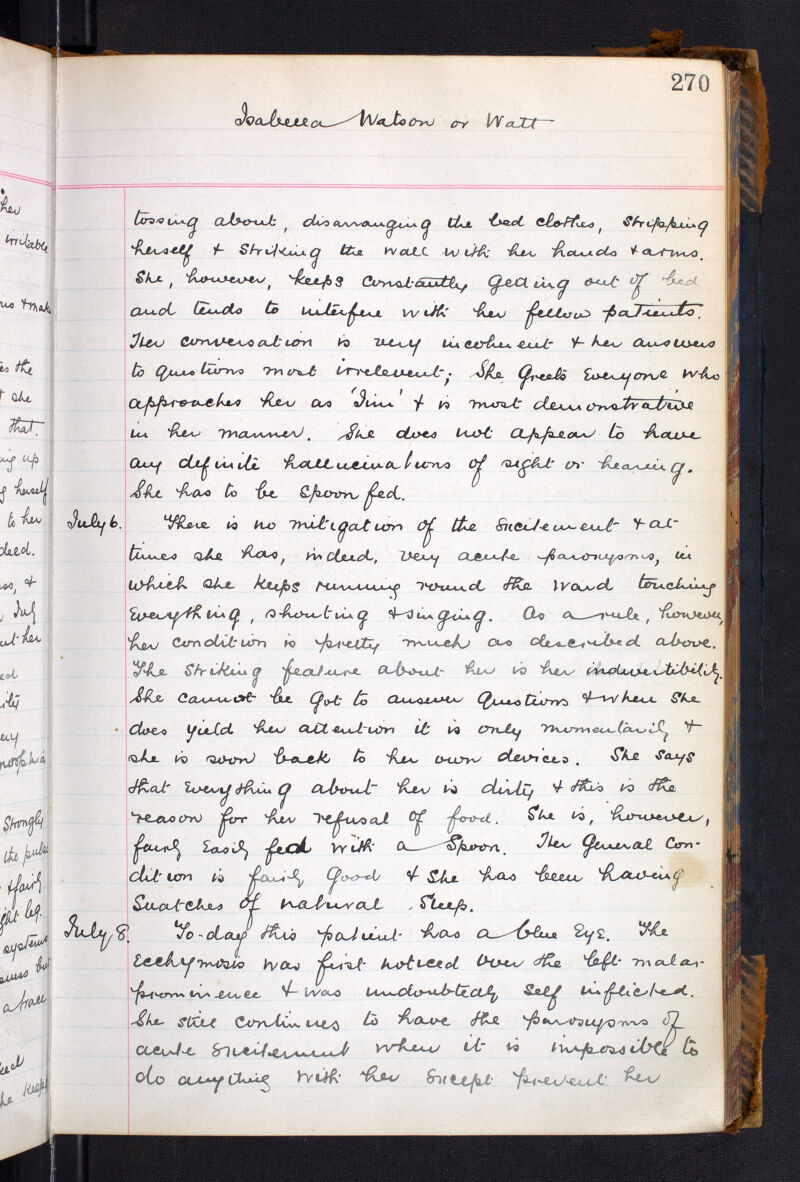 270
Isabella Watson or Watt
tossing about, disarranging the bed clothes, stripping
herself & striking the wall with her hands & arms.
She, however, keeps constantly getting out of bed
and tends to interfere with her fellow patients.
Her conversation is very incoherent & her answers
to questions most irrelevent; She greets everyone who
approaches her as 'Jim' & is most demonstrative
in her manner. She does not appear to have
any definite hallucinations of sight or hearing.
She has to be spoon fed.
July 6. There is no mitigation of the excitement & at
times she has, indeed, very acute paroxysms, in
which she keeps running round the ward touching
everything, shouting & singing. As a rule, however,
her condition is pretty much as described above.
The striking feature about her is her indivertibility.
She cannot be got to answer questions & when she
does yield her attention it is only momentarily &
she is soon back to her own devices. She says
that everything about her is dirty & this is the
reason for her refusal of food. She is, however,
fairly easily fed with a spoon. Her general con-
dition is fairly good & she has been having
snatches of natural sleep.
July 8. To-day this patient has a blue eye. The
ecchymosis was first noticed over the left malar
prominence & was undoubtedly self inflicted.
She still continues to have the paroxysms of
acute excitement when it is impossible to
do anything with her except prevent her
her
irritable
& make
the
she
that.
up
herself
to her
deed.
&
her
Strongly
the pulse
& fairly
leg.
systems
but
a trace
keeps